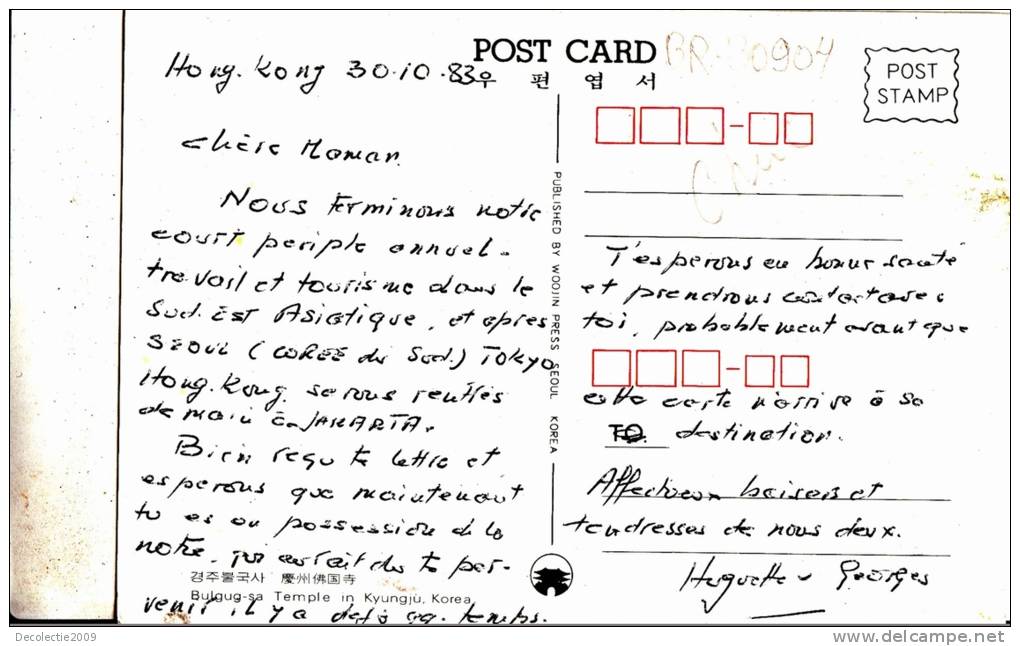 POST CARD
우편엽서
BR-30904
POST
STAMP
Hong. Kong 30.10.83
Chère Maman.
Nous terminons notre
court periple annuel.
travail et tourisme dans le
Sud. Est Asiatique, et apres
SEOUL (COREE du Sud.) TOKYO
Hong. Kong, serons rentrés
demain à JAKARTA.
Bien reçu ta lettre et
esperons que maintenant
tu es en possession de la
notre, qui aurait du te par-
venir il y a deja qq. temps.
경주불국사 慶州佛国寺
Bulgug-sa Temple in Kyungju, Korea
PUBLISHED BY WOOJIN PRESS SEOUL KOREA
T'esperons en bonne santé
et prendrons contact avec
toi, probablement avant que
cette carte n'arrive à sa
TO. destination.
Affectueux baisers et
tendresses de nous deux.
Huguette - Georges
Decolectie2009
www.delcampe.net